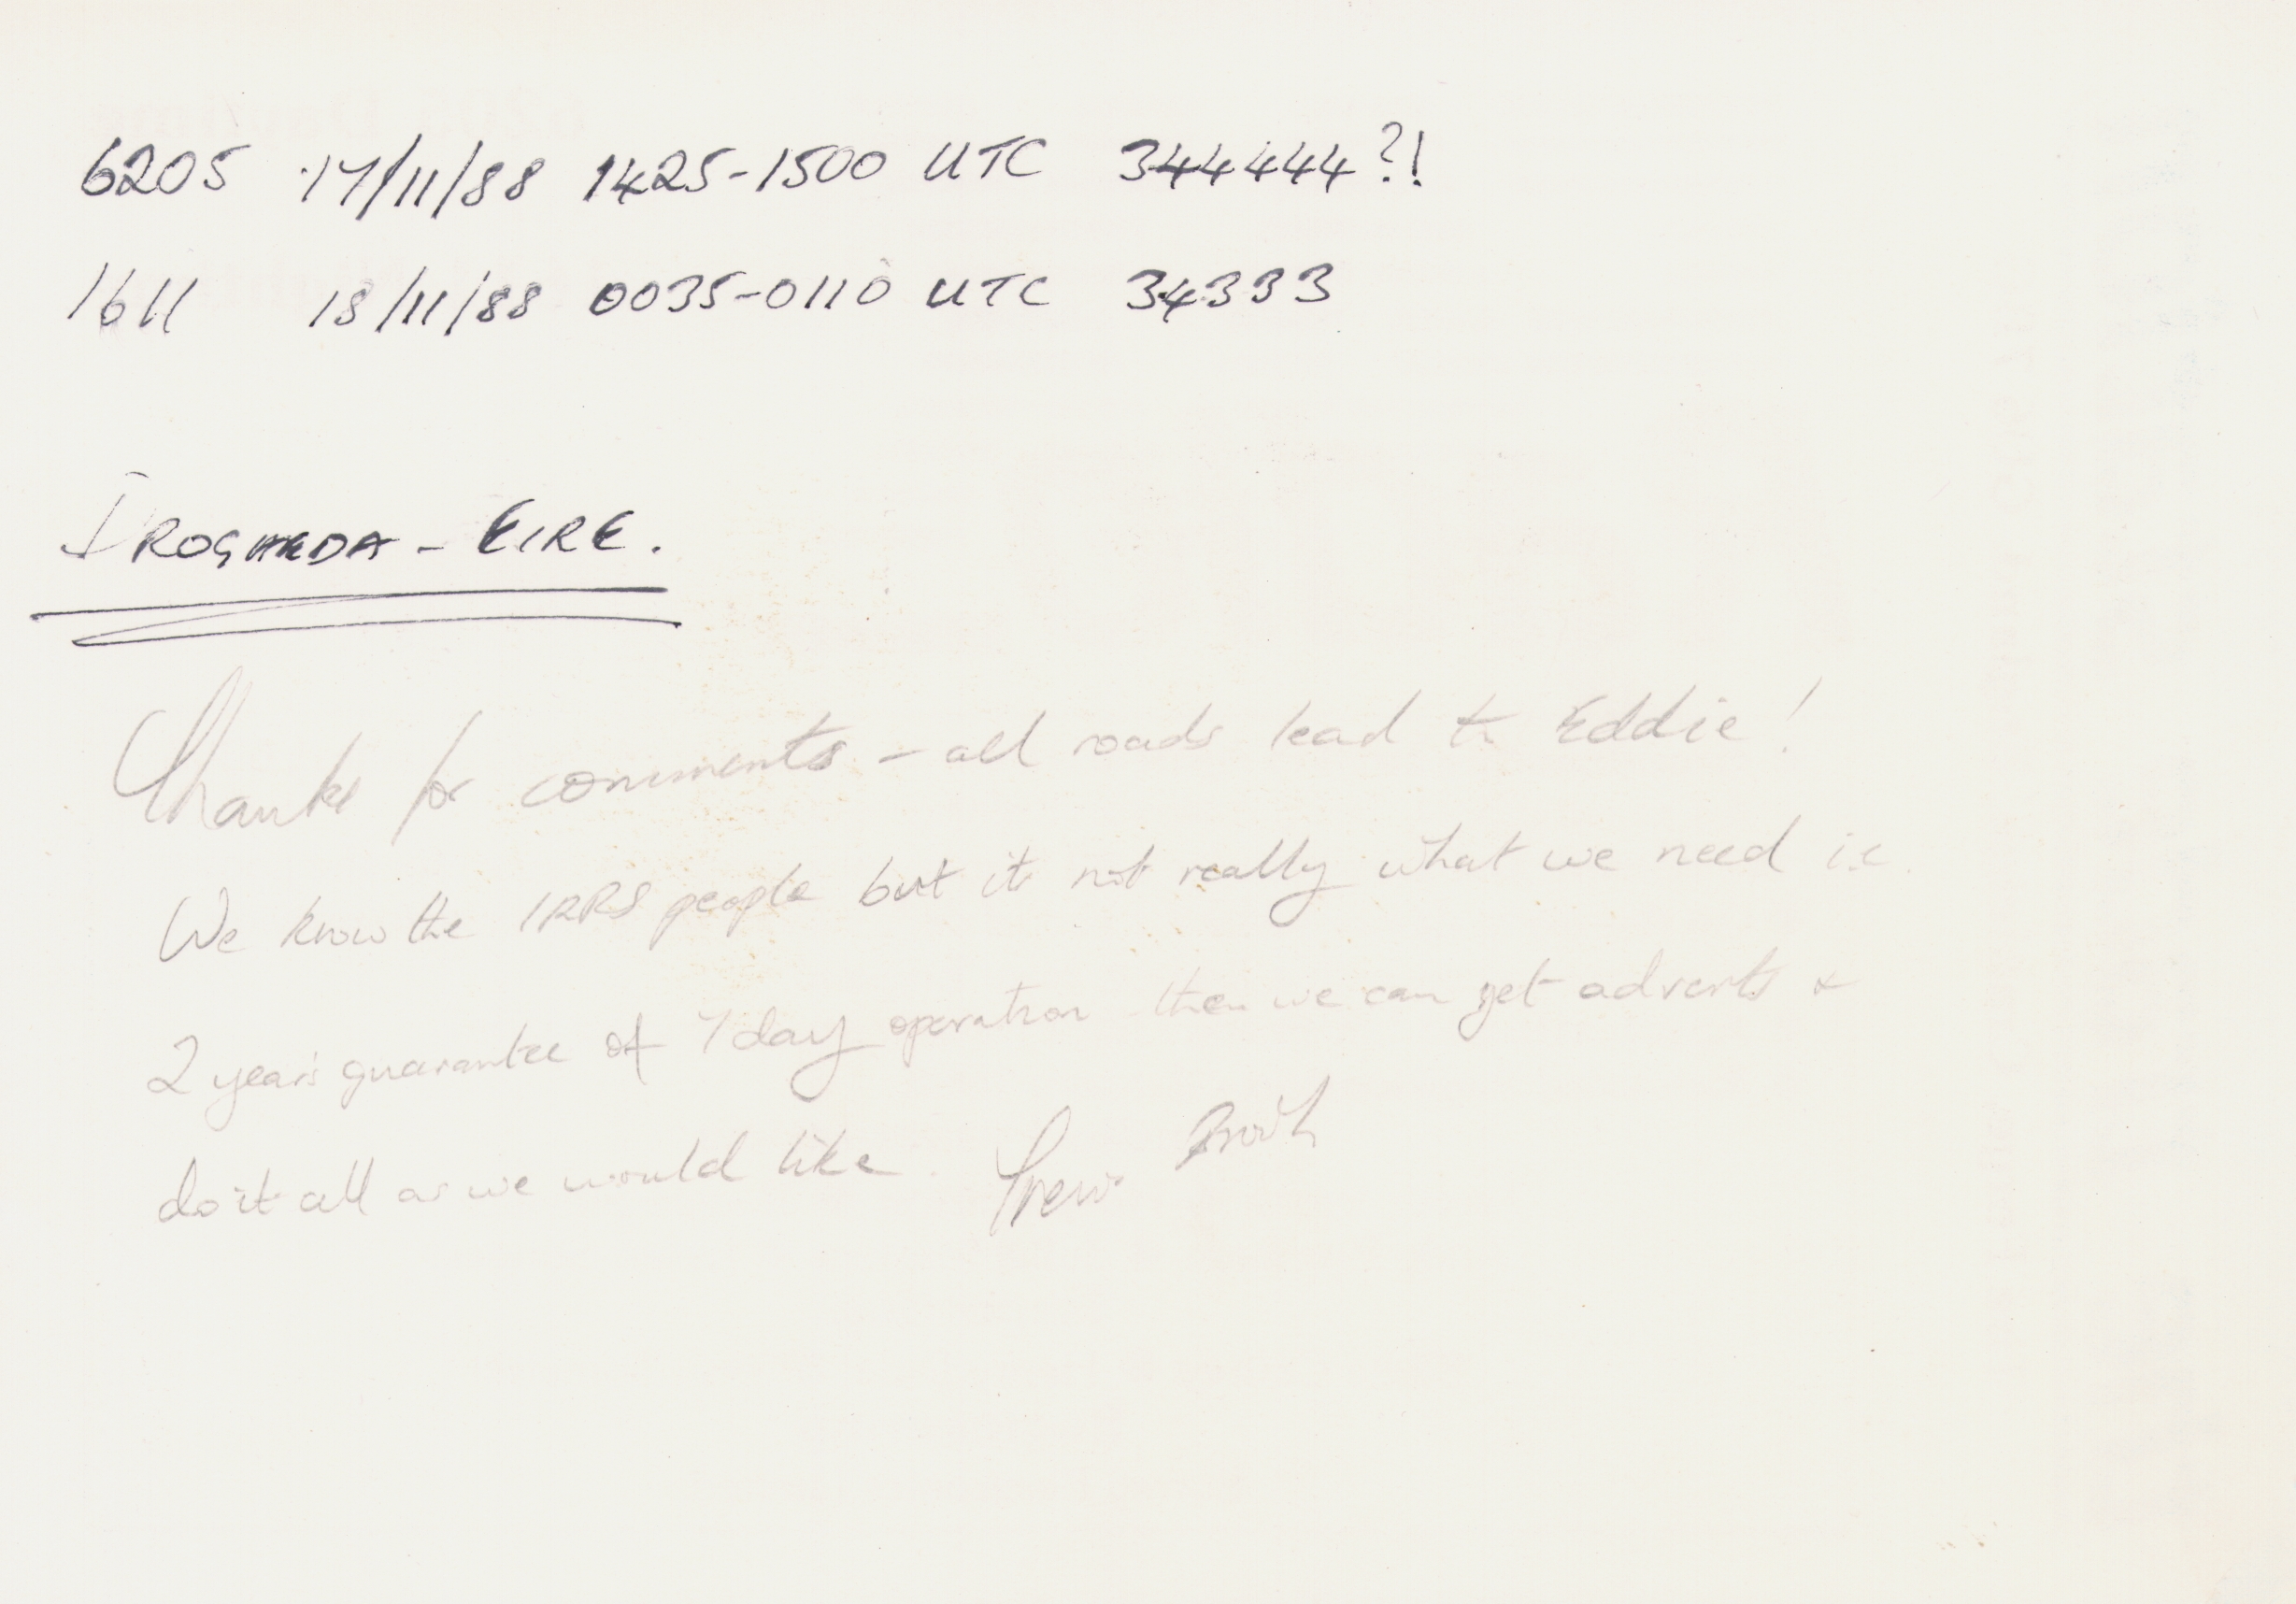 6205 17/11/88 1425-1500 UTC 344444?!
1611 18/11/88 0035-0110 UTC 34333
DROGHEDA - EIRE.
Thanks for comments - all roads lead to Eddie!
We know the IRRS people but its not really what we need i.e
2 years guarantee of 7 day operation then we can get adverts &
do it all as we would like.